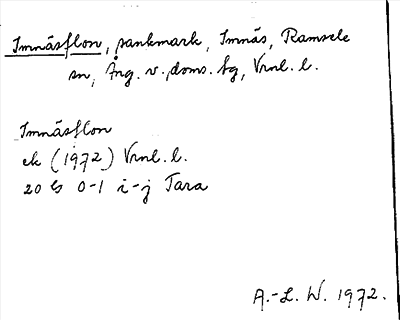 Imnäsflon, sankmark, Imnäs, Ramsele
sn, Ång. v. doms. bg, Vrnl. l.
Imnäsflon
ek (1972) Vrnl. l.
20 G 0-1 i-j Tara
A.-L. W. 1972.